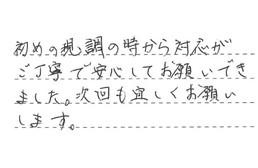 初めの現調の時から対応が
ご丁寧で安心してお願いでき
ました。次回も宜しくお願い
します。